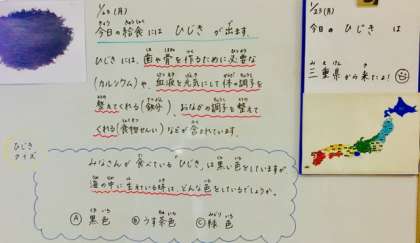 1/23(月)
今日の給食には ひじき が出ます。
ひじきには、歯や骨を作るために必要な
(カルシウム)や、血液を元気にして体の調子を
整えてくれる(鉄分)、おなかの調子を整えて
くれる(食物せんい)などが含まれています。
ひじき
クイズ
みなさんが食べている"ひじき"は黒い色をしていますが
海の中に生えている時は、どんな色をしているでしょうか。
Ⓐ 黒色 Ⓑ うす茶色 Ⓒ 緑色
1/23(月)
今日の ひじき は
三重県から来たよ!